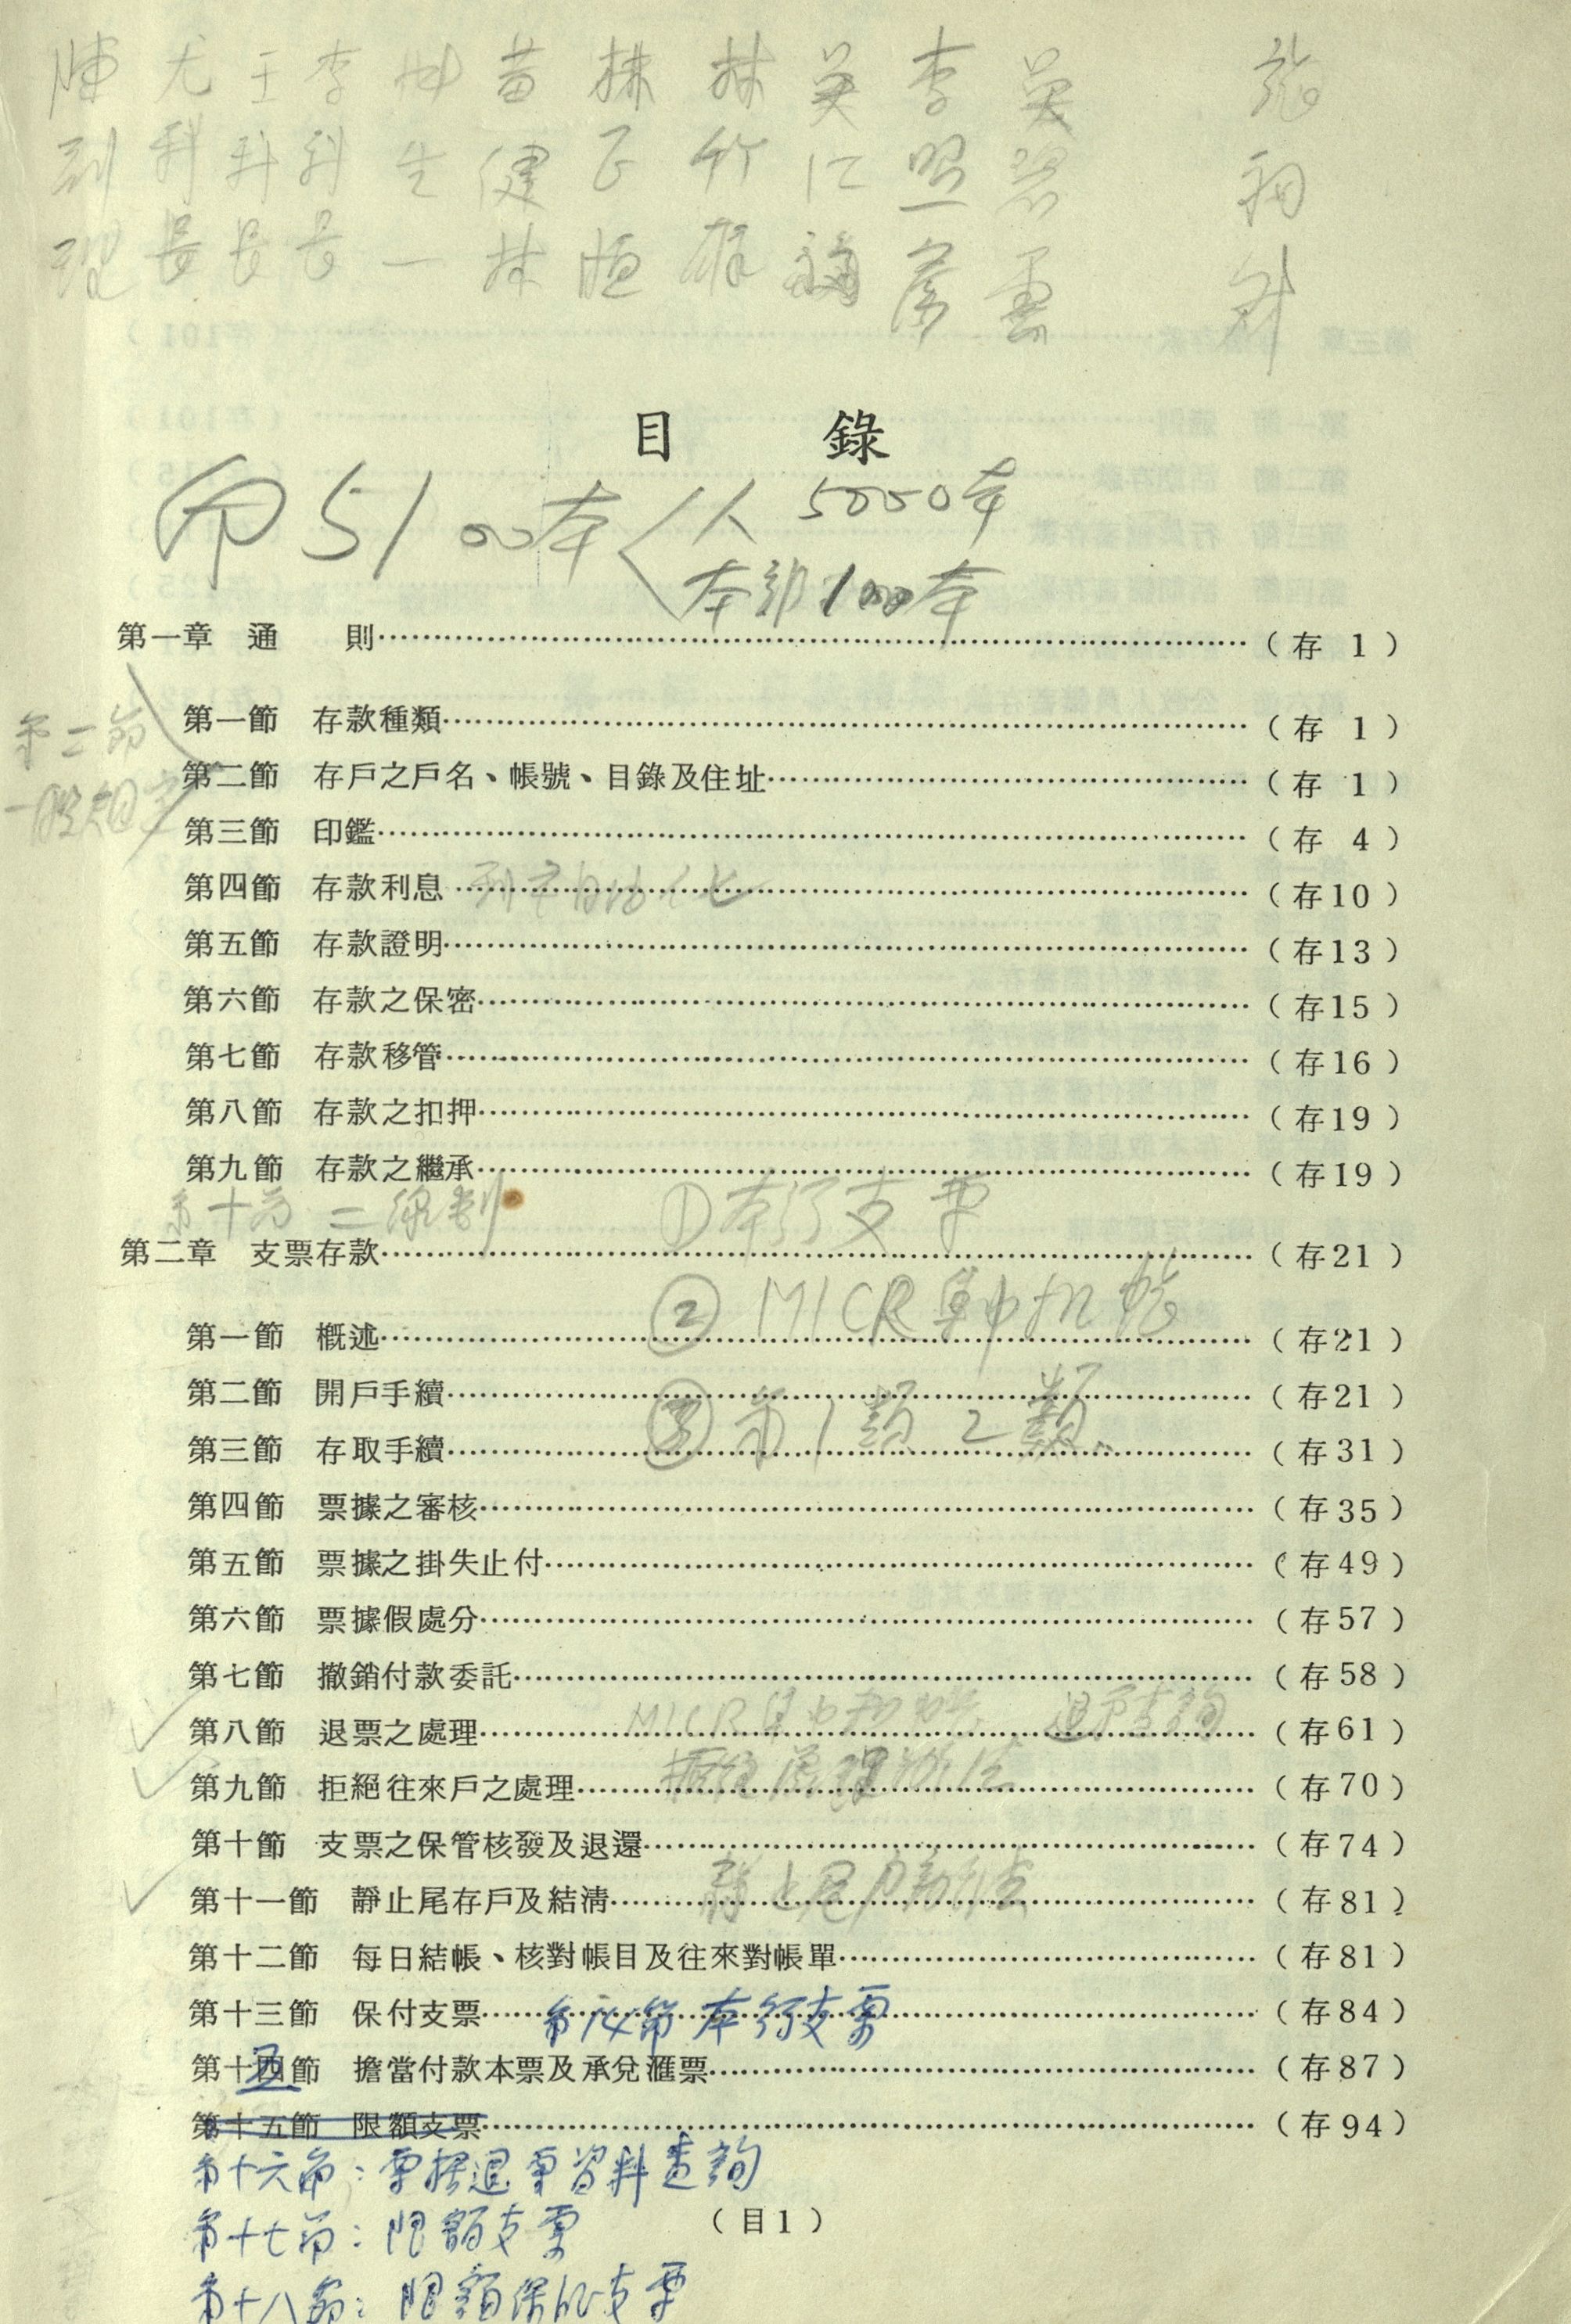 陳 尤 王 李 林 苗 林 林 吳 李 吳
副 科 科 科 生 健 正 竹 仁 照
理 長 長 長 一 林 恒 雄 福 彥
目 錄
印 5100本 人 5000本
本部 100本
第一章 通 則……(存 1)
第二節
一般規定
第一節 存款種類……(存 1)
第二節 存戶之戶名、帳號、目錄及住址……(存 1)
第三節 印鑑……(存 4)
第四節 存款利息……(存10)
第五節 存款證明……(存13)
第六節 存款之保密……(存15)
第七節 存款移管……(存16)
第八節 存款之扣押……(存19)
第九節 存款之繼承……(存19)
第十節 二線制 ①本行支票
第二章 支票存款……(存21)
② MICR集中扣帳
第一節 概述……(存21)
第二節 開戶手續……(存21)
③第1類2類
第三節 存取手續……(存31)
第四節 票據之審核……(存35)
第五節 票據之掛失止付……(存49)
第六節 票據假處分……(存57)
第七節 撤銷付款委託……(存58)
MICR集中 退票查詢
第八節 退票之處理……(存61)
管理辦法
第九節 拒絕往來戶之處理……(存70)
第十節 支票之保管核發及退還……(存74)
靜止尾戶
第十一節 靜止尾存戶及結清……(存81)
第十二節 每日結帳、核對帳目及往來對帳單……(存81)
第十三節 保付支票……(存84)
第14節 本行支票
第十四五節 擔當付款本票及承兌滙票……(存87)
第十五節 限額支票……(存94)
第十六節:票據退票資料查詢
第十七節:限額支票
第十八節:限額保付支票
(目1)